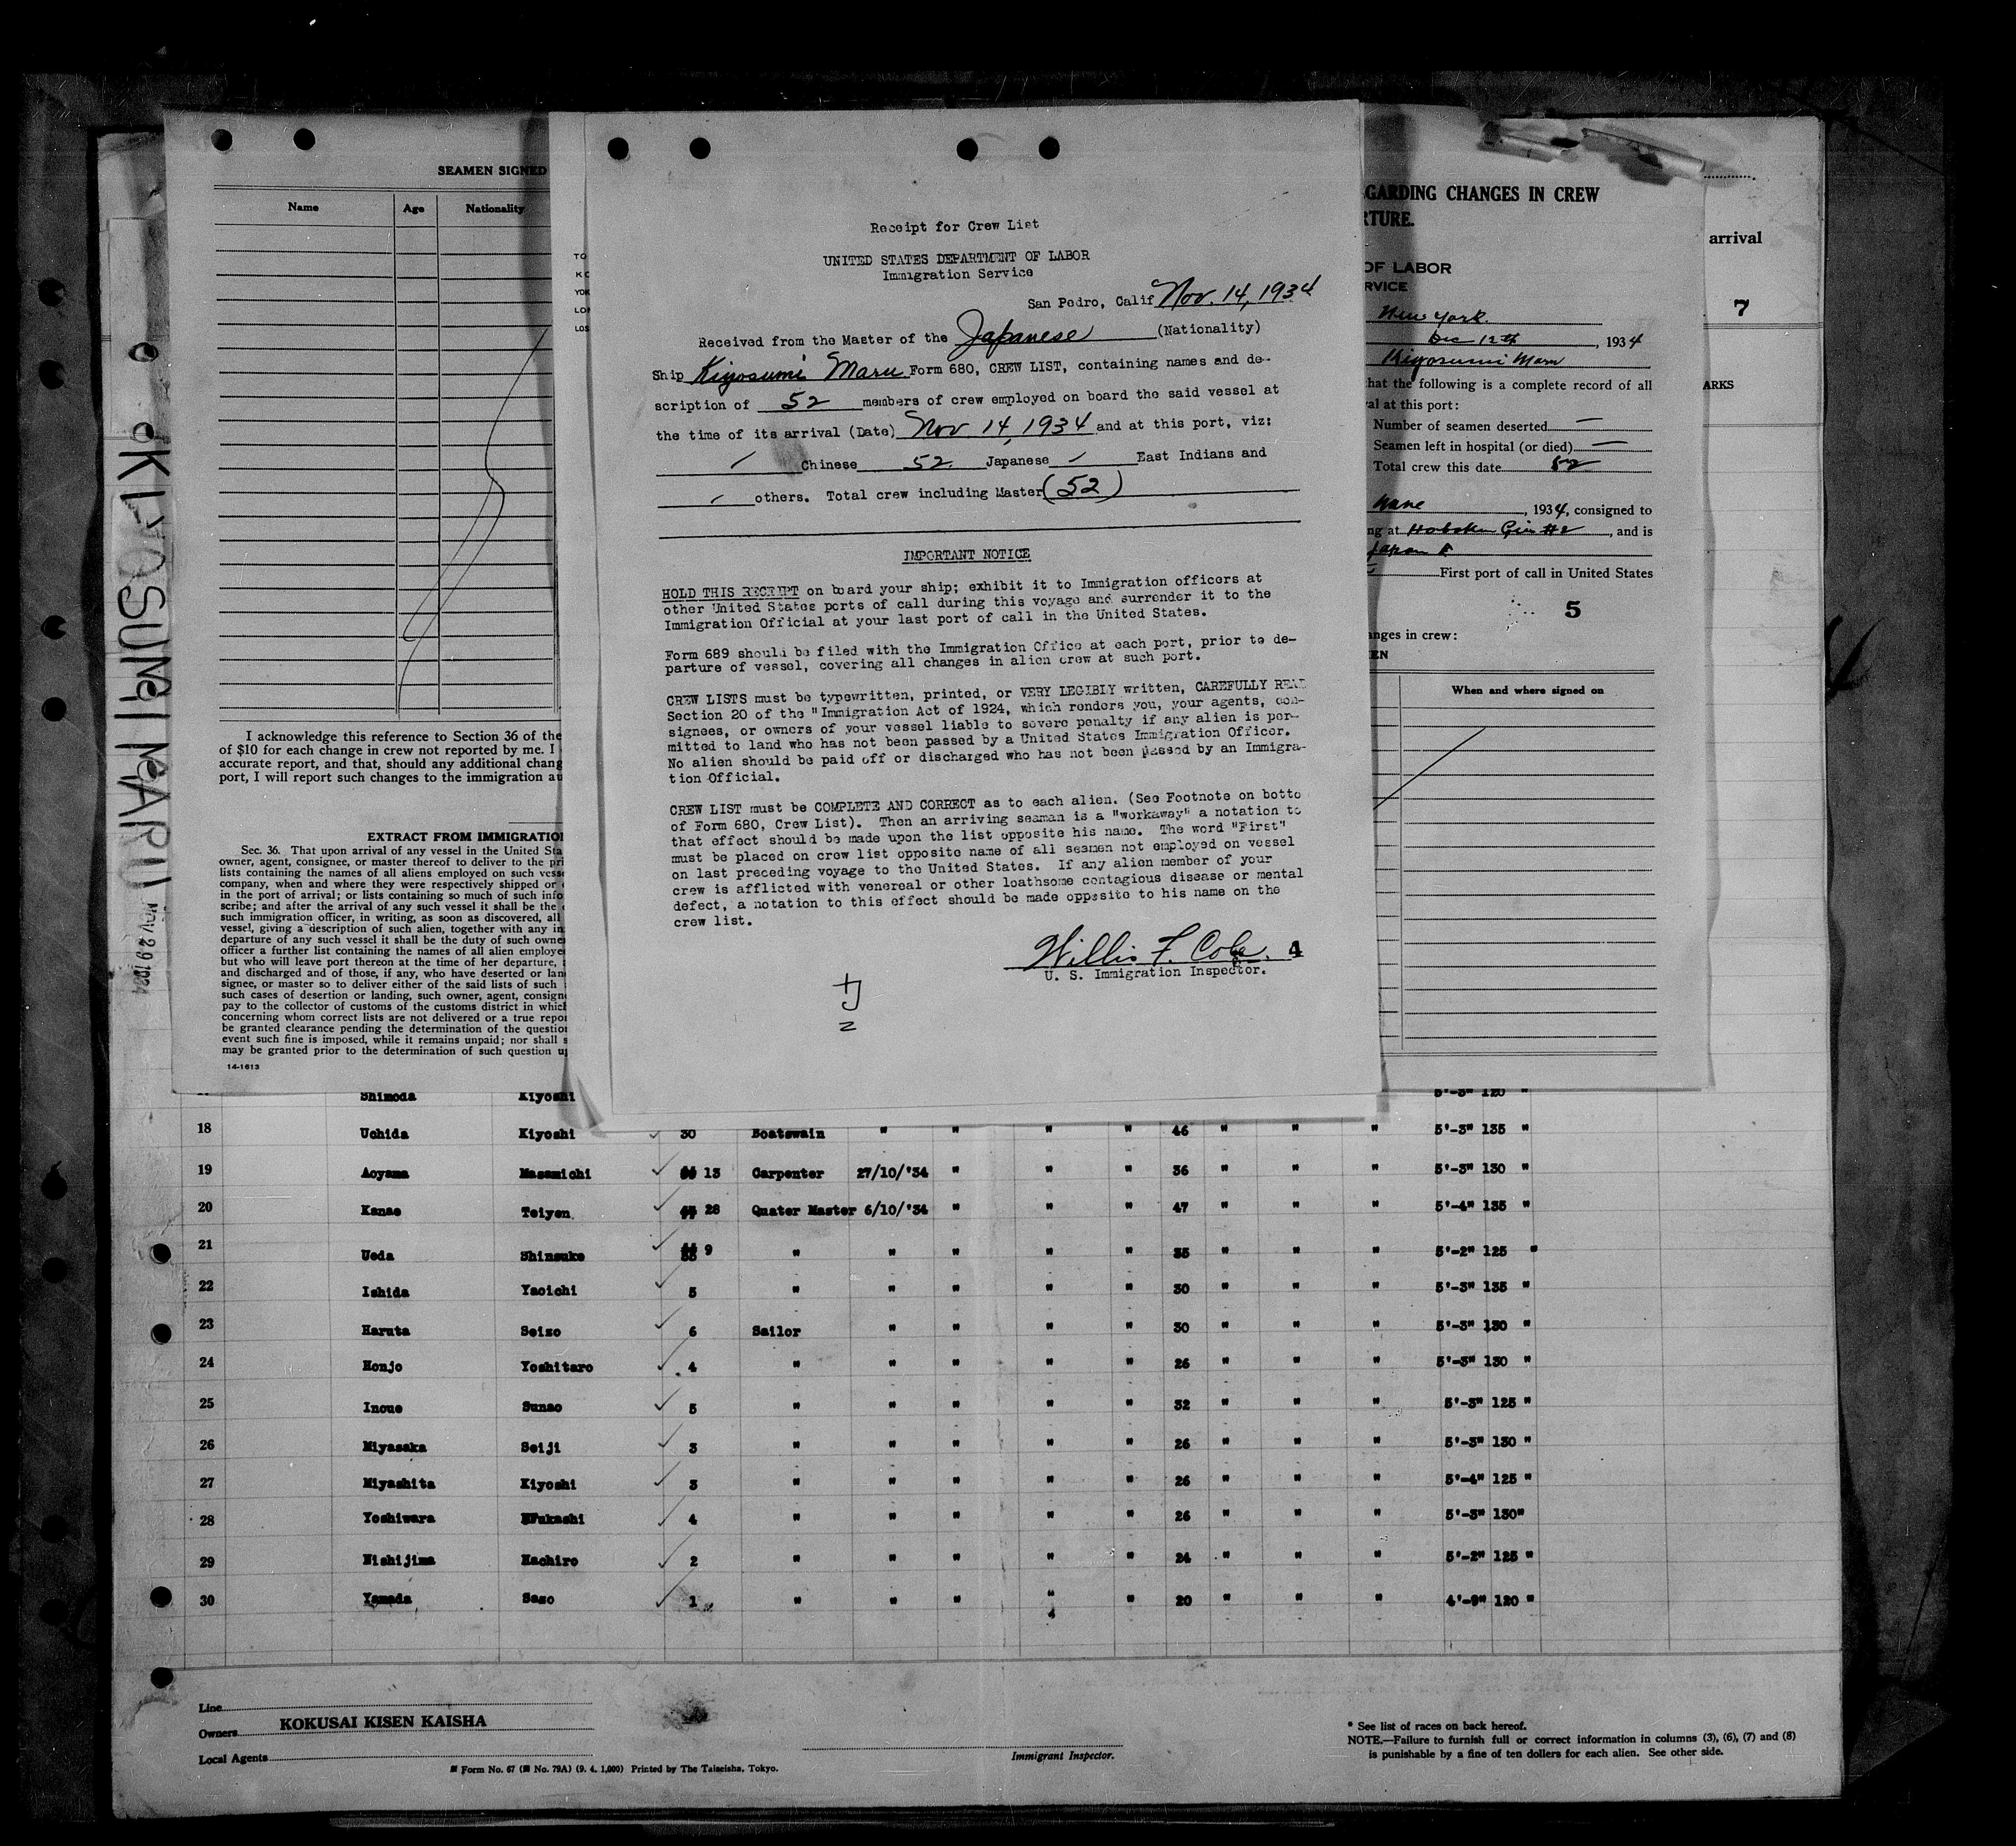 SEAMEN SIGNED
Name Age Nationality
I acknowledge this reference to Section 36 of the
of $10 for each change in crew not reported by me. I
accurate report, and that, should any additional chang
port, I will report such changes to the immigration au
EXTRACT FROM IMMIGRATIO
Sec. 36. That upon arrival of any vessel in the United Sta
owner, agent, consignee, or master thereof to deliver to the pri
lists containing the names of all aliens employed on such vess
company, when and where they were respectively shipped or
in the port of arrival; or lists containing so much of such info
scribe; and after the arrival of any such vessel it shall be the
such immigration officer, in writing, as soon as discovered, all
vessel, giving a description of such alien, together with any in
departure of any such vessel it shall be the duty of such owne
officer a further list containing the names of all alien employe
but who will leave port thereon at the time of her departure,
and discharged and of those, if any, who have deserted or lan
signee, or master so to deliver either of the said lists of such
such cases of desertion or landing, such owner, agent, consign
pay to the collector of customs of the customs district in which
concerning whom correct lists are not delivered or a true repor
be granted clearance pending the determination of the question
event such fine is imposed, while it remains unpaid; nor shall s
may be granted prior to the determination of such question u
14-1613
TO
YOK
LOS
Receipt for Crew List
UNITED STATES DEPARTMENT OF LABOR
Immigration Service
San Pedro, Calif Nov. 14, 1934
Received from the Master of the Japanese (Nationality)
Ship Kiyosumi Maru Form 680, CREW LIST, containing names and de-
scription of 52 members of crew employed on board the said vessel at
the time of its arrival (Date) Nov 14, 1934 and at this port, viz:
/ Chinese 52 Japanese / East Indians and
/ others. Total crew including Master (52)
IMPORTANT NOTICE
HOLD THIS RECEIPT on board your ship; exhibit it to Immigration officers at
other United States ports of call during this voyage and surrender it to the
Immigration Official at your last port of call in the United States.
Form 689 should be filed with the Immigration Office at each port, prior to de-
parture of vessel, covering all changes in alien crew at such port.
CREW LISTS must be typewritten, printed, or VERY LEGIBLY written, CAREFULLY READ
Section 20 of the "Immigration Act of 1924, which renders you, your agents, con-
signees, or owners of your vessel liable to severe penalty if any alien is per-
mitted to land who has not been passed by a United States Immigration Officer.
No alien should be paid off or discharged who has not been passed by an Immigra-
tion Official.
CREW LIST must be COMPLETE AND CORRECT as to each alien. (See Footnote on botto
of Form 680, Crew List). Then an arriving seaman is a "workaway" a notation to
that effect should be made upon the list opposite his name. The word "First"
must be placed on crew list opposite name of all seamen not employed on vessel
on last preceding voyage to the United States. If any alien member of your
crew is afflicted with venereal or other loathsome contagious disease or mental
defect, a notation to this effect should be made opposite to his name on the
crew list.
Willis F. Cole. 4
U. S. Immigration Inspector.
GARDING CHANGES IN CREW
RTURE.
OF LABOR
RVICE
New York
Dec 12th, 1934
Kiyosumi Maru
hat the following is a complete record of all
al at this port:
Number of seamen deserted —
Seamen left in hospital (or died) —
Total crew this date 52
, 1934, consigned to
ng at Hoboken Pier #2, and is
Japan
First port of call in United States
5
anges in crew:
EN
When and where signed on
arrival
7
ARKS
KIYOSUMI MARU NOV 29 1934
Shimoda Kiyoshi 5'-3" 120 "
18 Uchida Kiyoshi ✓ 30 Boatswain " " " " 46 " " " 5'-3" 135 "
19 Aoyama Masamichi ✓ 13 Carpenter 27/10/'34 " " " 36 " " " 5'-3" 130 "
20 Kanae Teiyen ✓ 28 Quater Master 6/10/'34 " " " 47 " " " 5'-4" 135 "
21 Ueda Shinsuke ✓ 9 " " " " " 35 " " " 5'-2" 125 "
22 Ishida Yaoichi ✓ 5 " " " " " 30 " " " 5'-3" 135 "
23 Haruta Seizo ✓ 6 Sailor " " " " 30 " " " 5'-3" 130 "
24 Honjo Yoshitaro ✓ 4 " " " " " 26 " " " 5'-3" 130 "
25 Inoue Sunao ✓ 5 " " " " " 32 " " " 5'-3" 125 "
26 Miyasaka Seiji ✓ 3 " " " " " 26 " " " 5'-3" 130 "
27 Miyashita Kiyoshi ✓ 3 " " " " " 26 " " " 5'-4" 125 "
28 Yoshiwara Fukashi ✓ 4 " " " " " 26 " " " 5'-3" 130"
29 Nishijima Hachiro ✓ 2 " " " " " 24 " " " 5'-2" 125 "
30 Yamada Saso ✓ 1 " " " " " 20 " " " 4'-9" 120 "
Line
Owners KOKUSAI KISEN KAISHA
Local Agents
Immigrant Inspector.
Form No. 67 (No. 79A) (9. 4. 1,000) Printed by The Taiseisha, Tokyo.
* See list of races on back hereof.
NOTE.—Failure to furnish full or correct information in columns (3), (6), (7) and (8)
is punishable by a fine of ten dollars for each alien. See other side.